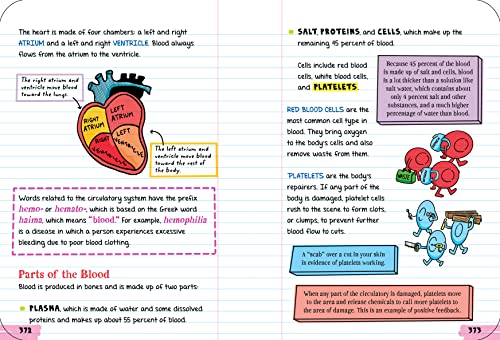 The heart is made of four chambers: a left and right
ATRIUM and a left and right VENTRICLE. Blood always
flows from the atrium to the ventricle.
The right atrium and
ventricle move blood
toward the lungs.
RIGHT
ATRIUM
LEFT
ATRIUM
RIGHT
LEFT
The left atrium and
ventricle move blood
toward the rest of
the body.
Words related to the circulatory system have the prefix
hemo- or hemato-, which is based on the Greek word
haima, which means "blood." For example, hemophilia
is a disease in which a person experiences excessive
bleeding due to poor blood clotting.
Parts of the Blood
Blood is produced in bones and is made up of two parts:
PLASMA, which is made of water and some dissolved
proteins and makes up about 55 percent of blood.
372
SALT, PROTEINS, and CELLS, which make up the
remaining 45 percent of blood.
Cells include red blood
cells, white blood cells,
and PLATELETS.
Because 45 percent of the blood
is made up of salt and cells, blood
is a lot thicker than a solution like
salt water, which contains about
only 4 percent salt and other
substances, and a much higher
percentage of water than blood.
RED BLOOD CELLS are the
most common cell type in
blood. They bring oxygen
to the body's cells and also
remove waste from them.
WASTE
PLATELETS are the body's
repairers. If any part of the
body is damaged, platelet cells
rush to the scene to form clots,
or clumps, to prevent further
blood flow to cuts.
A "scab" over a cut in your skin
is evidence of platelets working.
When any part of the circulatory is damaged, platelets move
to the area and release chemicals to call more platelets to
the area of damage. This is an example of positive feedback.
373